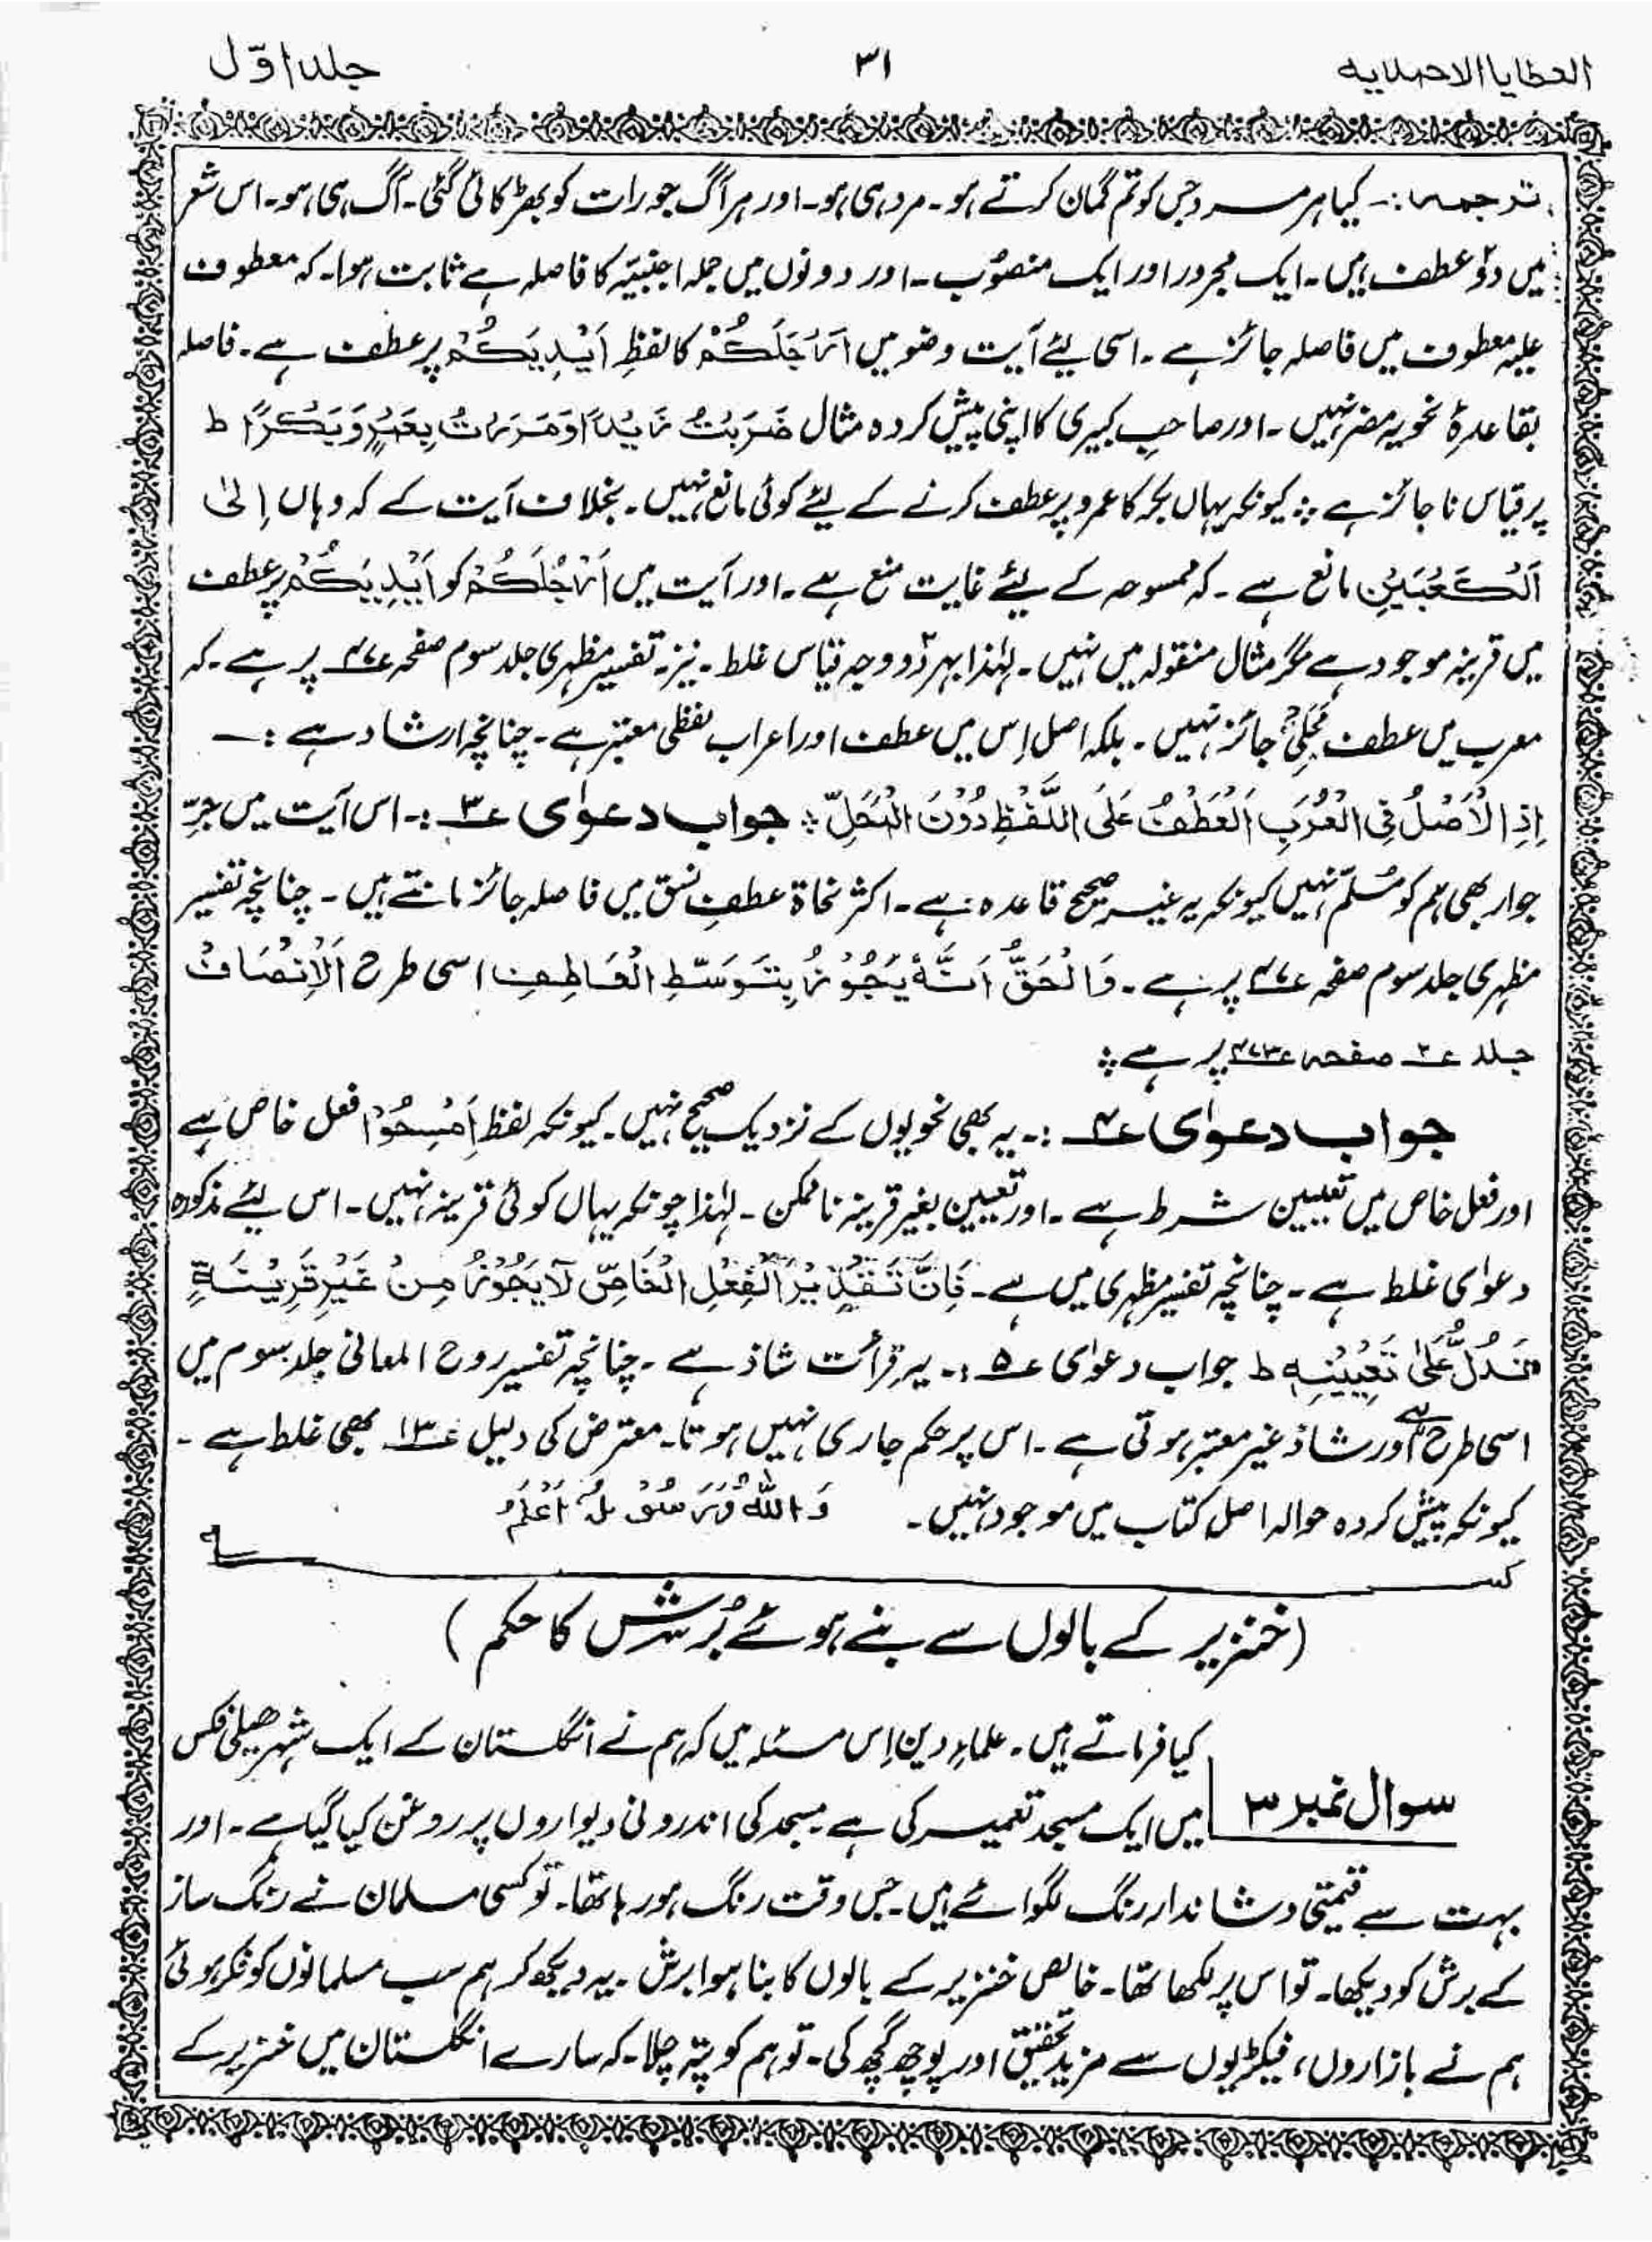 العطایا الاحمدیہ
۳۱
جلد اوّل
ترجمہ:۔ کیا ہر مرد جس کو تم گمان کرتے ہو۔ مرد ہی ہو۔ اور ہر آگ جو رات کو بھڑکائی گئی۔ آگ ہی ہو۔ اس شعر
میں دوؔ عطف ہیں۔ ایک مجرور اور ایک منصوب۔ اور دونوں میں جملہ اجنبیّہ کا فاصلہ ہے ثابت ہوا۔ کہ معطوف
علیہ معطوف میں فاصلہ جائز ہے۔ اسی لیئے آیت وضو میں اَرْجُلَكُمْ کا لفظِ اَیْدِیَكُمْ پر عطف ہے۔ فاصلہ
بقاعدۂ نحویہ مضر نہیں۔ اور صاحبِ کبیری کا اپنی پیش کردہ مثال ضَرَبْتُ زَیْدًا وَمَرَرْتُ بِعَمْرٍ وَبَكْرًا ط
پر قیاس نا جائز ہے ؞ کیونکہ یہاں بکر کا عمرو پر عطف کرنے کے لیئے کوئی مانع نہیں۔ بخلاف آیت کے کہ وہاں اِلیٰ
اَلْكَعْبَیْنِ مانع ہے۔ کہ ممسوحہ کے لیئے غایت منع ہے۔ اور آیت میں اَرْجُلَكُمْ کو اَیْدِیَكُمْ پر عطف
میں قرینہ موجود ہے مگر مثال منقولہ میں نہیں۔ لہٰذا بہر دو وجہ قیاس غلط۔ نیز۔ تفسیر مظہری جلد سوم صفحہ پر ہے۔ کہ
معرب میں عطف مَحَلِّیْ جائز نہیں۔ بلکہ اصل اِس میں عطف اور اعراب لفظی معتبر ہے۔ چنانچہ ارشاد ہے :۔
اِذِ الْاَصْلُ فِی الْعُرَبِ اَلْعَطْفُ عَلَی اللَّفْظِ دُوْنَ الْمَحَلِّ ؞ جواب دعوٰی ؏۳ :۔ اس آیت میں جرِّ
جوار بھی ہم کو مُسلّم نہیں کیونکہ یہ غیر صحیح قاعدہ ہے۔ اکثر نحاۃ عطفِ نسق میں فاصلہ جائز مانتے ہیں۔ چنانچہ تفسیر
مظہری جلد سوم صفحہ پر ہے۔ وَالْحَقُّ اَنَّهٗ یَجُوْزُ بِتَوَسُّطِ الْعَاطِفِ اسی طرح اَلْاِنْصَافُ
جلد ؏۲ صفحہ پر ہے ؞
جواب دعوٰی ؏۴ :۔ یہ بھی نحویوں کے نزدیک صحیح نہیں۔ کیونکہ لفظ اِمْسَحُوْا فعل خاص ہے
اور فعل خاص میں تعیین شرط ہے۔ اور تعیین بغیر قرینہ ناممکن۔ لہٰذا چونکہ یہاں کوئی قرینہ نہیں۔ اس لیئے مذکورہ
دعوٰی غلط ہے۔ چنانچہ تفسیر مظہری میں ہے۔ فَاِنَّ تَقْدِیْرَ الْفِعْلِ الْخَاصِّ لَا یَجُوْزُ مِنْ غَیْرِ قَرِیْنَةٍ
تَدُلُّ عَلٰی تَعْیِیْنِهٖ ط جواب دعوٰی ؏۵ :۔ یہ قرأت شاذ ہے۔ چنانچہ تفسیر روح المعانی جلد سوم میں
اسی طرح ہے اور شاذ غیر معتبر ہوتی ہے۔ اس پر حکم جاری نہیں ہوتا۔ معترض کی دلیل ؏۱۳ بھی غلط ہے۔
کیونکہ پیش کردہ حوالہ اصل کتاب میں موجود نہیں۔ وَاللّٰهُ وَرَسُوْلُهٗ اَعْلَمُ
(خنزیر کے بالوں سے بنے ہوئے بُرش کا حکم)
کیا فرماتے ہیں۔ علماءِ دین اِس مسئلہ میں کہ ہم نے انگلستان کے ایک شہر ھیلی فکس
سوال نمبر ۳
میں ایک مسجد تعمیر کی ہے مسجد کی اندرونی دیواروں پر روغن کیا گیا ہے۔ اور
بہت سے قیمتی و شاندار رنگ لگوائے ہیں۔ جس وقت رنگ ہو رہا تھا۔ تو کسی مسلمان نے رنگ ساز
کے برش کو دیکھا۔ تو اس پر لکھا تھا۔ خالص خنزیر کے بالوں کا بنا ہوا برش۔ یہ دیکھ کر ہم سب مسلمانوں کو فکر ہوئی
ہم نے بازاروں، فیکٹریوں سے مزید تحقیق اور پوچھ گچھ کی۔ تو ہم کو پتہ چلا۔ کہ سارے انگلستان میں خنزیر کے